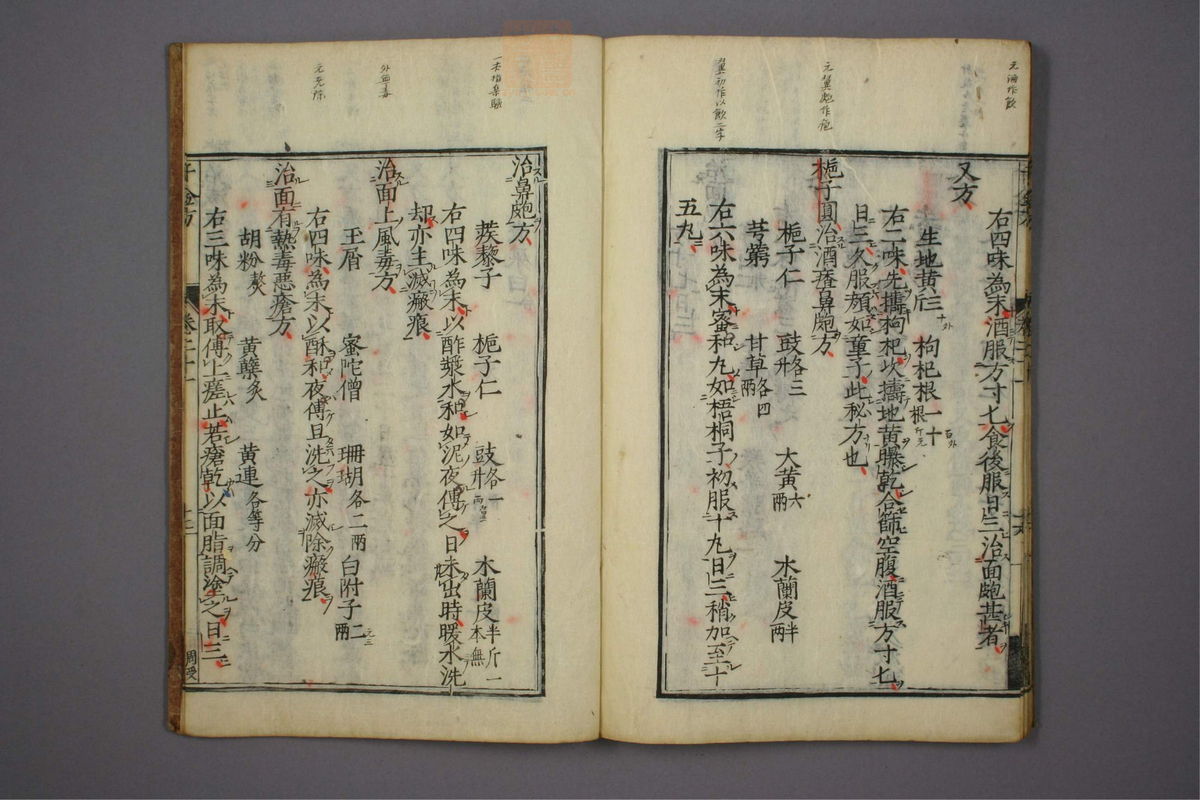 右四味為末酒服方寸匕食後服日三治面皰甚者
又方
生地黃
枸杞根一十
根
右二味先擣枸杞次擣地黃曝乾合篩空腹酒服方寸匕
日三久服顏如童子此秘方也
梔子圓治酒瘡鼻皰方
梔子仁
豉各三
升
大黃六
兩
木蘭皮半
兩
芎藭
甘草各四
兩
右六味為末蜜和丸如梧桐子初服十丸日三稍加至十
五丸
治鼻皰方
蒺藜子
梔子仁
豉各一
升
木蘭皮半斤一
本無
右四味為末以酢漿水和如泥夜傅之日未出時暖水洗
却亦主滅瘢痕
治面上風毒方
玉屑
蜜陀僧
珊瑚各二兩
白附子二
兩
右四味為末以酥和夜傅旦洗之亦滅除瘢痕
治面有熱毒惡瘡方
胡粉熬
黃蘗炙
黃連各等分
右三味為末取傅上瘥止若瘡乾以面脂調塗之日三
千金方
卷二十一